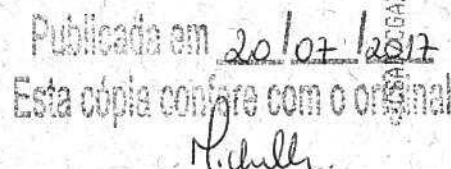 Publicada em 20/07/2017
Esta cópia confere com o original